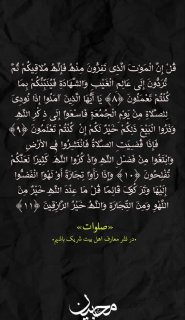 قُلْ إِنَّ الْمَوْتَ الَّذِي تَفِرُّونَ مِنْهُ فَإِنَّهُ مُلَاقِيكُمْ ثُمَّ
تُرَدُّونَ إِلَى عَالِمِ الْغَيْبِ وَالشَّهَادَةِ فَيُنَبِّئُكُمْ بِمَا
كُنْتُمْ تَعْمَلُونَ ﴿٨﴾ يَا أَيُّهَا الَّذِينَ آمَنُوا إِذَا نُودِيَ
لِلصَّلَاةِ مِنْ يَوْمِ الْجُمُعَةِ فَاسْعَوْا إِلَى ذِكْرِ اللَّهِ
وَذَرُوا الْبَيْعَ ذَلِكُمْ خَيْرٌ لَكُمْ إِنْ كُنْتُمْ تَعْلَمُونَ ﴿٩﴾
فَإِذَا قُضِيَتِ الصَّلَاةُ فَانْتَشِرُوا فِي الْأَرْضِ
وَابْتَغُوا مِنْ فَضْلِ اللَّهِ وَاذْكُرُوا اللَّهَ كَثِيرًا لَعَلَّكُمْ
تُفْلِحُونَ ﴿١٠﴾ وَإِذَا رَأَوْا تِجَارَةً أَوْ لَهْوًا انْفَضُّوا
إِلَيْهَا وَتَرَكُوكَ قَائِمًا قُلْ مَا عِنْدَ اللَّهِ خَيْرٌ مِنَ
اللَّهْوِ وَمِنَ التِّجَارَةِ وَاللَّهُ خَيْرُ الرَّازِقِينَ ﴿١١﴾
«صلوات»
«در نشر معارف اهل بیت شریک باشیم»